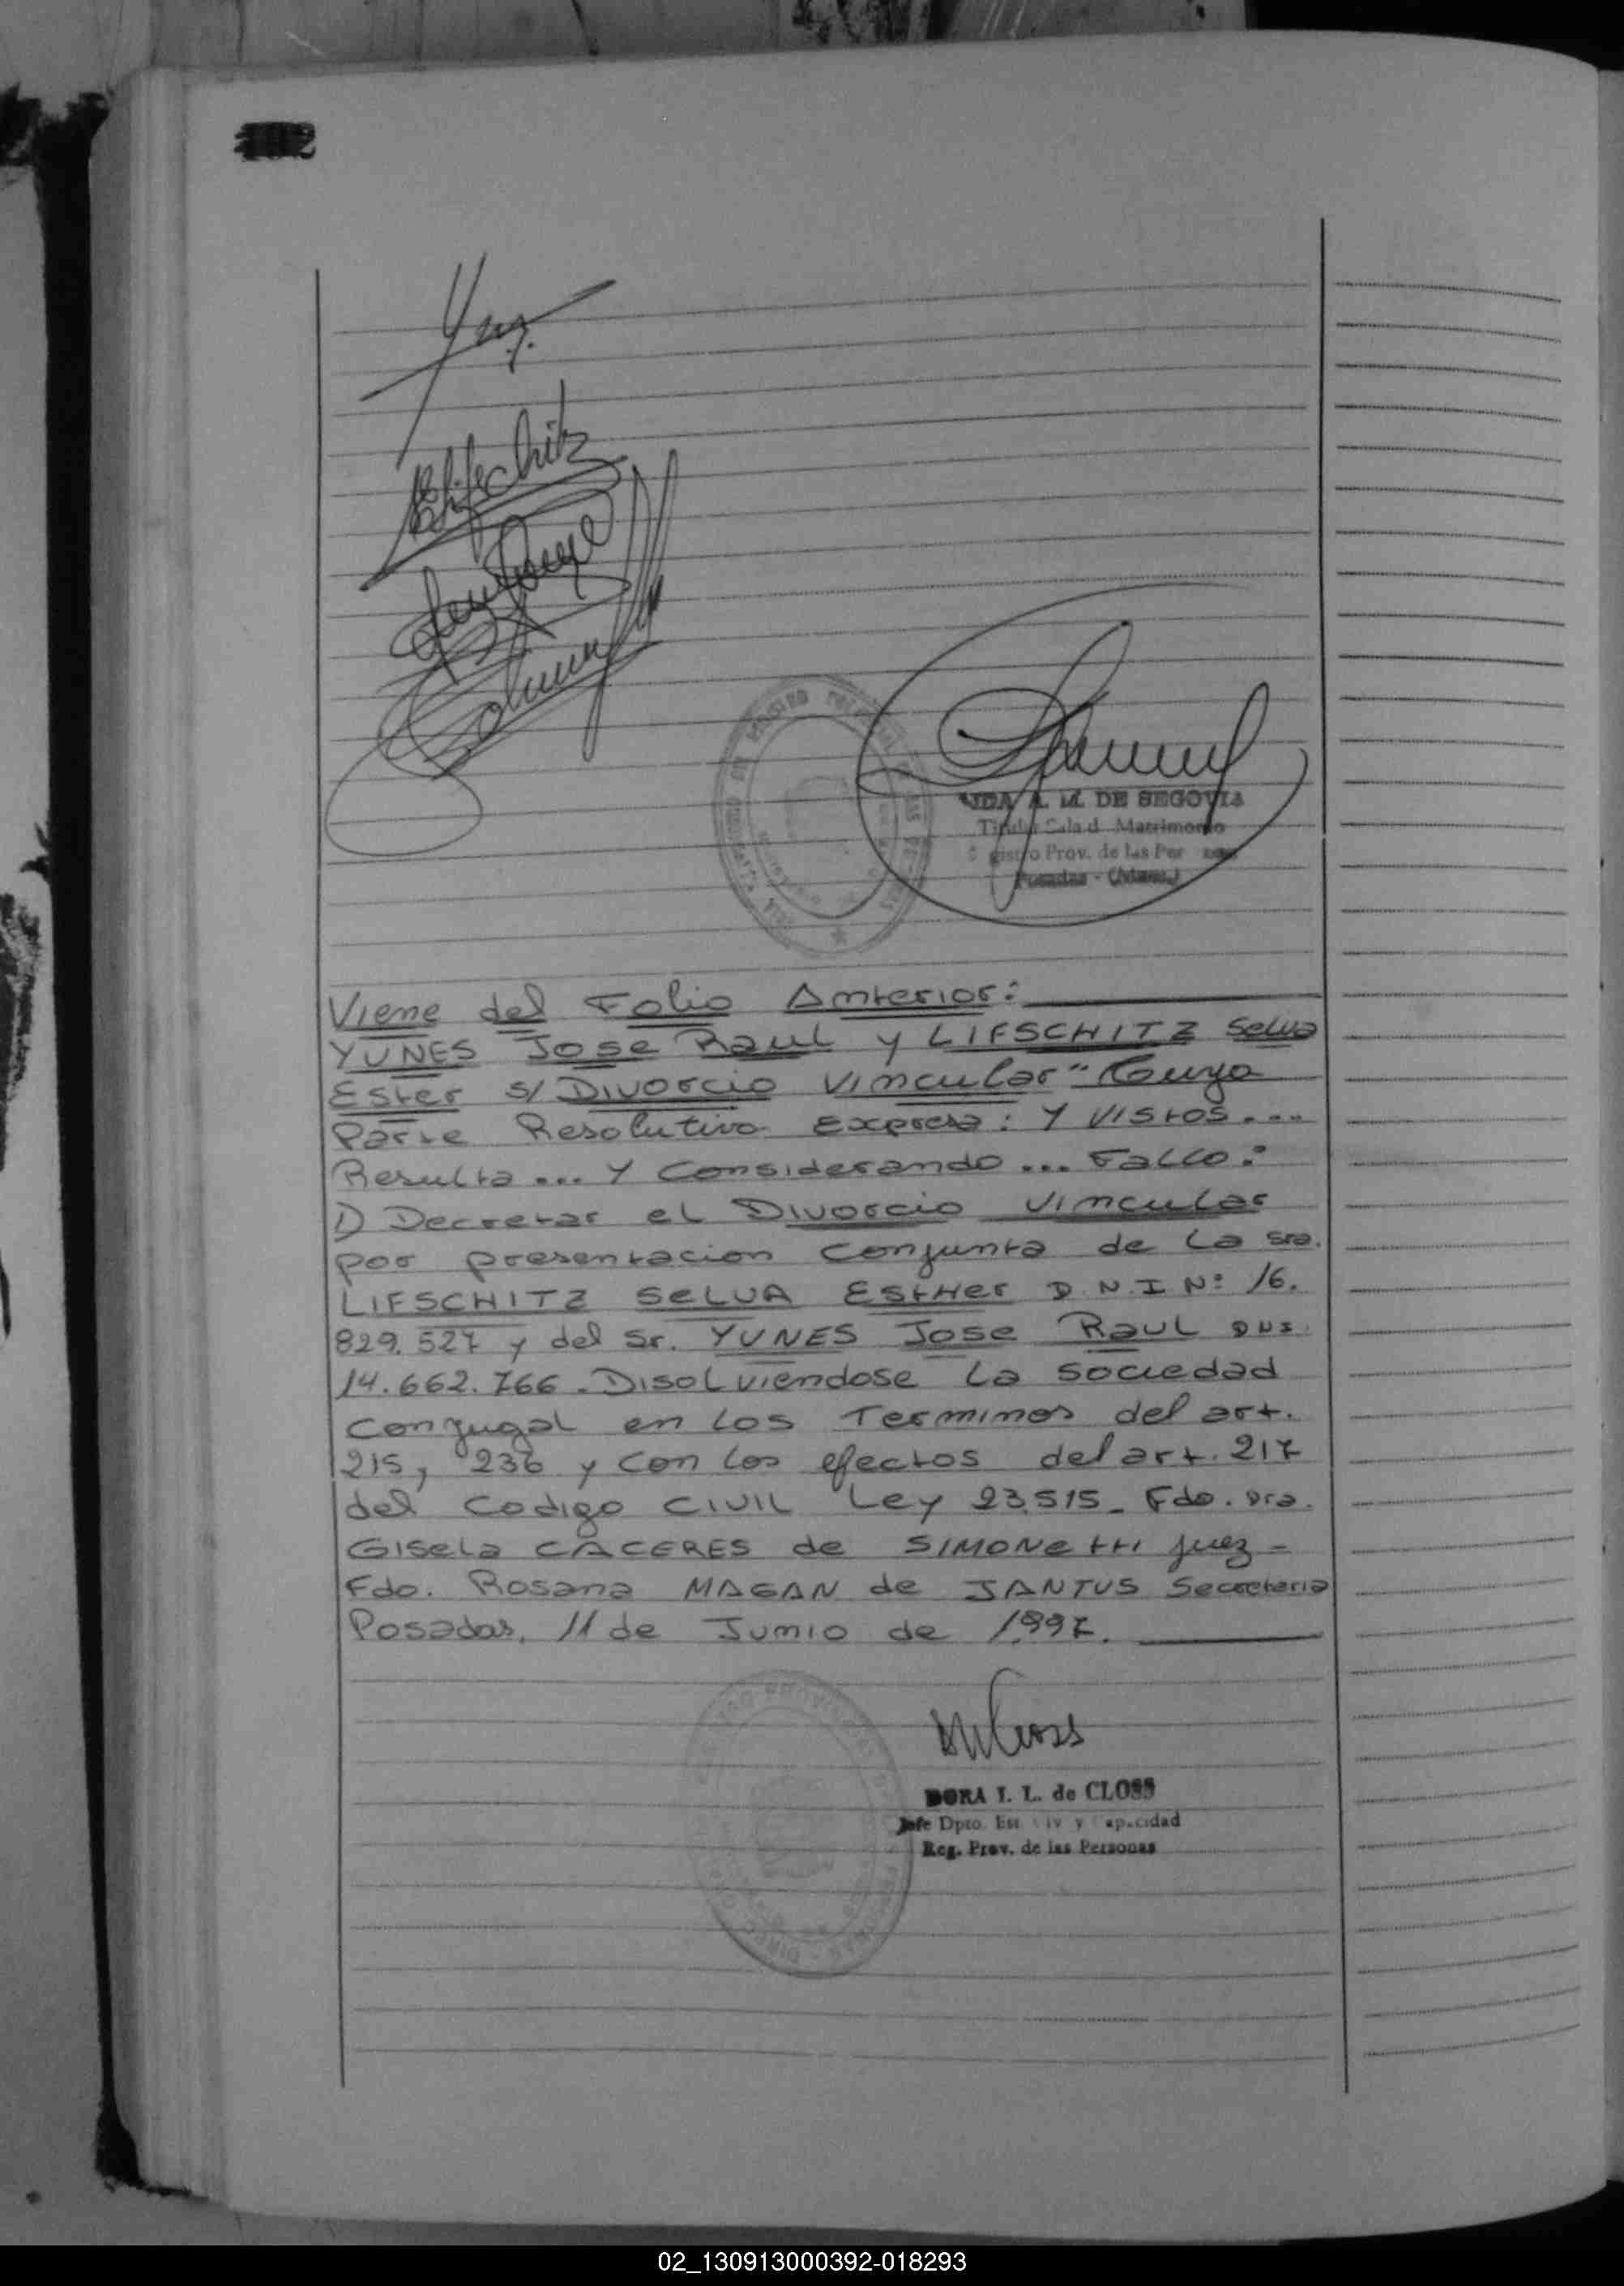 Lifschitz
A. M. DE SEGOVIA
Matrimonio
Prov. de las
Posadas - (Mnes.)
Viene del Folio Anterior:
YUNES Jose Raul y LIFSCHITZ Selva
Ester s/ Divorcio Vincular" Cuya
Parte Resolutiva Expresa: Y Vistos...
Resulta... Y Considerando... Fallo:
1) Decretar el Divorcio Vincular
por presentacion Conjunta de la Sra.
LIFSCHITZ SELVA ESTHer D.N.I Nº 16.
829.527 y del Sr. YUNES Jose Raul DNI
14.662.766. Disolviendose la sociedad
Conjugal en los Terminos del art.
215, 236 y con los efectos del art. 217
del Codigo Civil Ley 23.515_ Fdo. Dra.
Gisela CACERES de SIMONetti juez -
Fdo. Rosana MAGAN de JANTUS Secretaria
Posadas, 11 de Junio de 1.997.
DORA I. L. de CLOSS
Jefe Dpto. Est. Civ y Capacidad
Reg. Prov. de las Personas
02_130913000392-018293